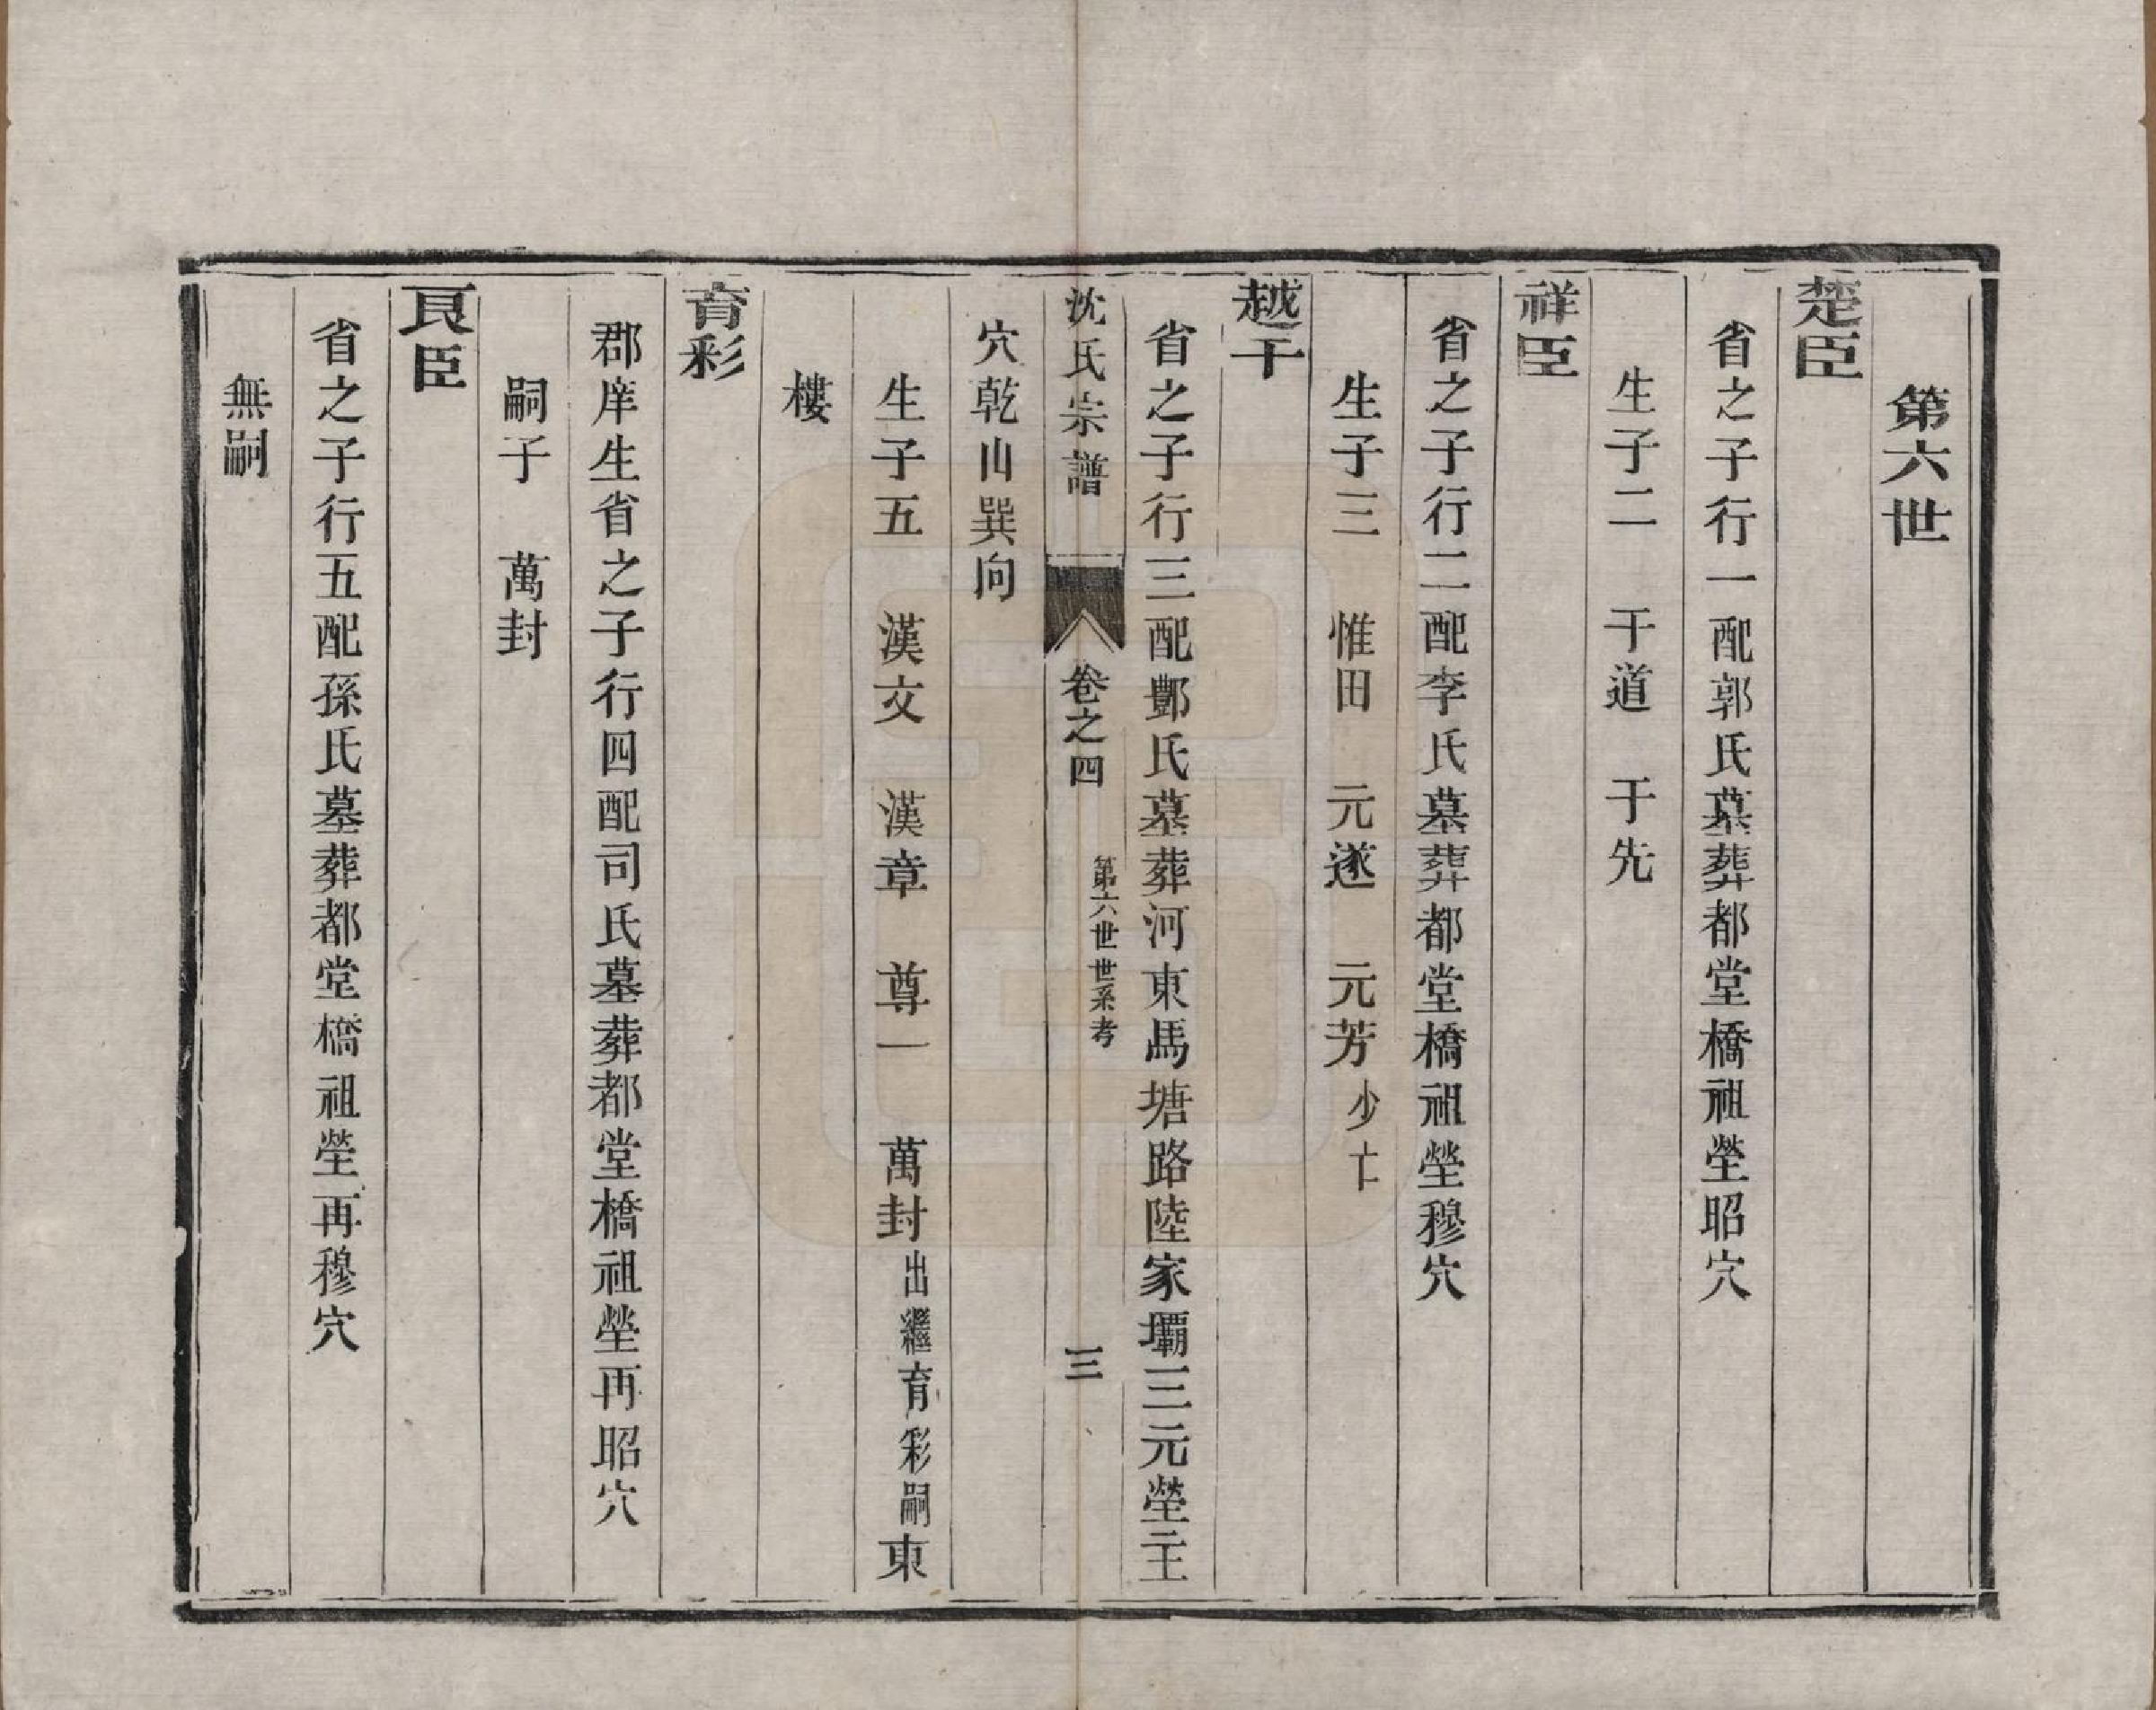 第六世
楚臣
省之子行一配郭氏墓葬都堂橋祖塋昭穴
生子二　于道　于先
祥臣
省之子行二配李氏墓葬都堂橋祖塋穆穴
生子三　惟田　元遂　元芳少亡
越千
省之子行三配酆氏墓葬河東馬塘路陸家壩三元塋主
沈氏宗譜　卷之四　第六世世系考　三
穴乾山巽向
生子五　漢文　漢章　尊一　萬封出繼育彩嗣東
樓
育彩
郡庠生省之子行四配司氏墓葬都堂橋祖塋再昭穴
嗣子　萬封
良臣
省之子行五配孫氏墓葬都堂橋祖塋再穆穴
無嗣